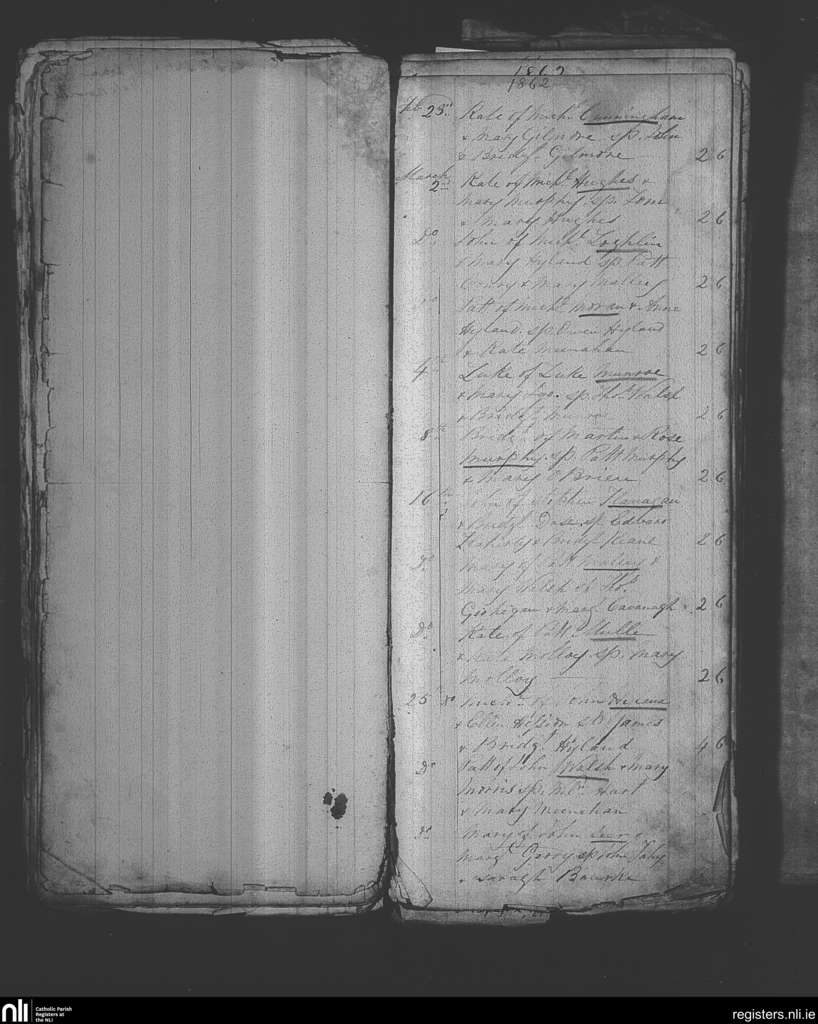 1862
1862
Feb 23rd Kate of Mich.l Cunningham
& Mary Gilmore sp. John
& Bridg.t Gilmore 2 6
March 2nd Kate of Mich.l Hughes &
Mary Murphy sp. Tom
& Mary Hughes 2 6
Do John of Mich.l
& Mary Hyland sp. Patt
& Mary Malley 2 6
Do Patt of Mich.l Moran & Anne
Hyland sp. Owen Hyland
& Kate Munahan 2 6
4th Luke of Luke Munroe
& Mary sp. Tho.s Walsh
& Bridg.t 2 6
8th Bridg.t of Martin & Rose
Murphy sp. Patt Murphy
& Mary O'Brien 2 6
16th John of Stephen Flanagan
& Bridg.t sp. Edward
& Bridg.t Keane 2 6
Do Mary of Patt Malley &
Mary Walsh sp. Tho.s
Geohegan & Marg.t Cavanagh 2 6
Do Kate of Patt
& Kate Molloy sp. Mary
Molloy 2 6
25th Do John
& Ellen Hession sp. James
& Bridg.t Hyland 4 6
Do Patt of John Walsh & Mary
Morris sp. Hart
& Mary Meenehan
Do Mary of John &
Marg.t Gerry sp. John Fahy
& Saragh Bourke
nli
Catholic Parish
Registers at
the NLI
registers.nli.ie